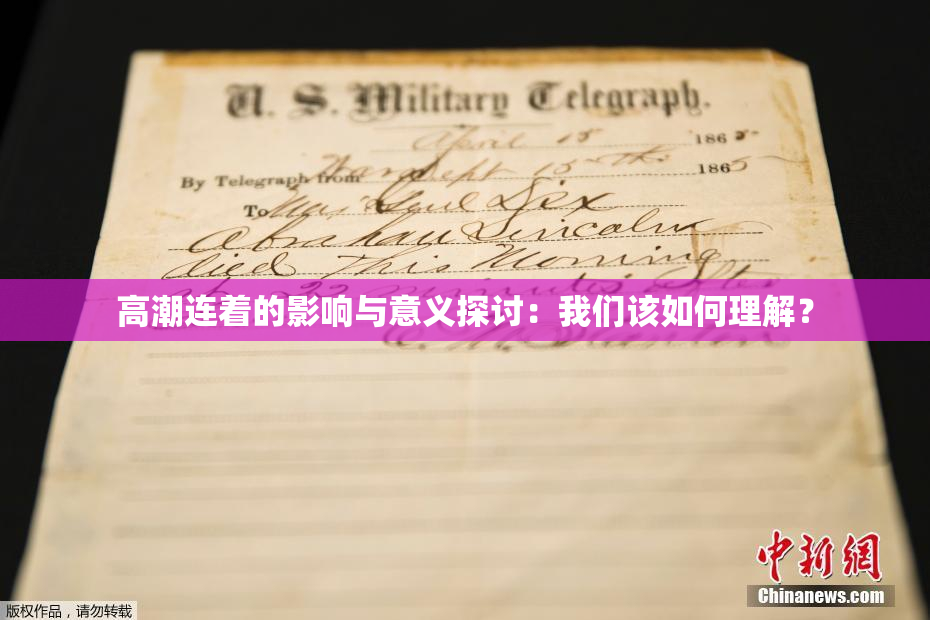 U. S. Military Telegraph.
April 15 1865
By Telegraph from War Dept 15th 1865
To Maj Genl Dix
Abraham Lincoln
died This Morning
at 22 minutes after
高潮连着的影响与意义探讨：我们该如何理解？
E. M. Stanton
中新网
Chinanews.com
版权作品，请勿转载